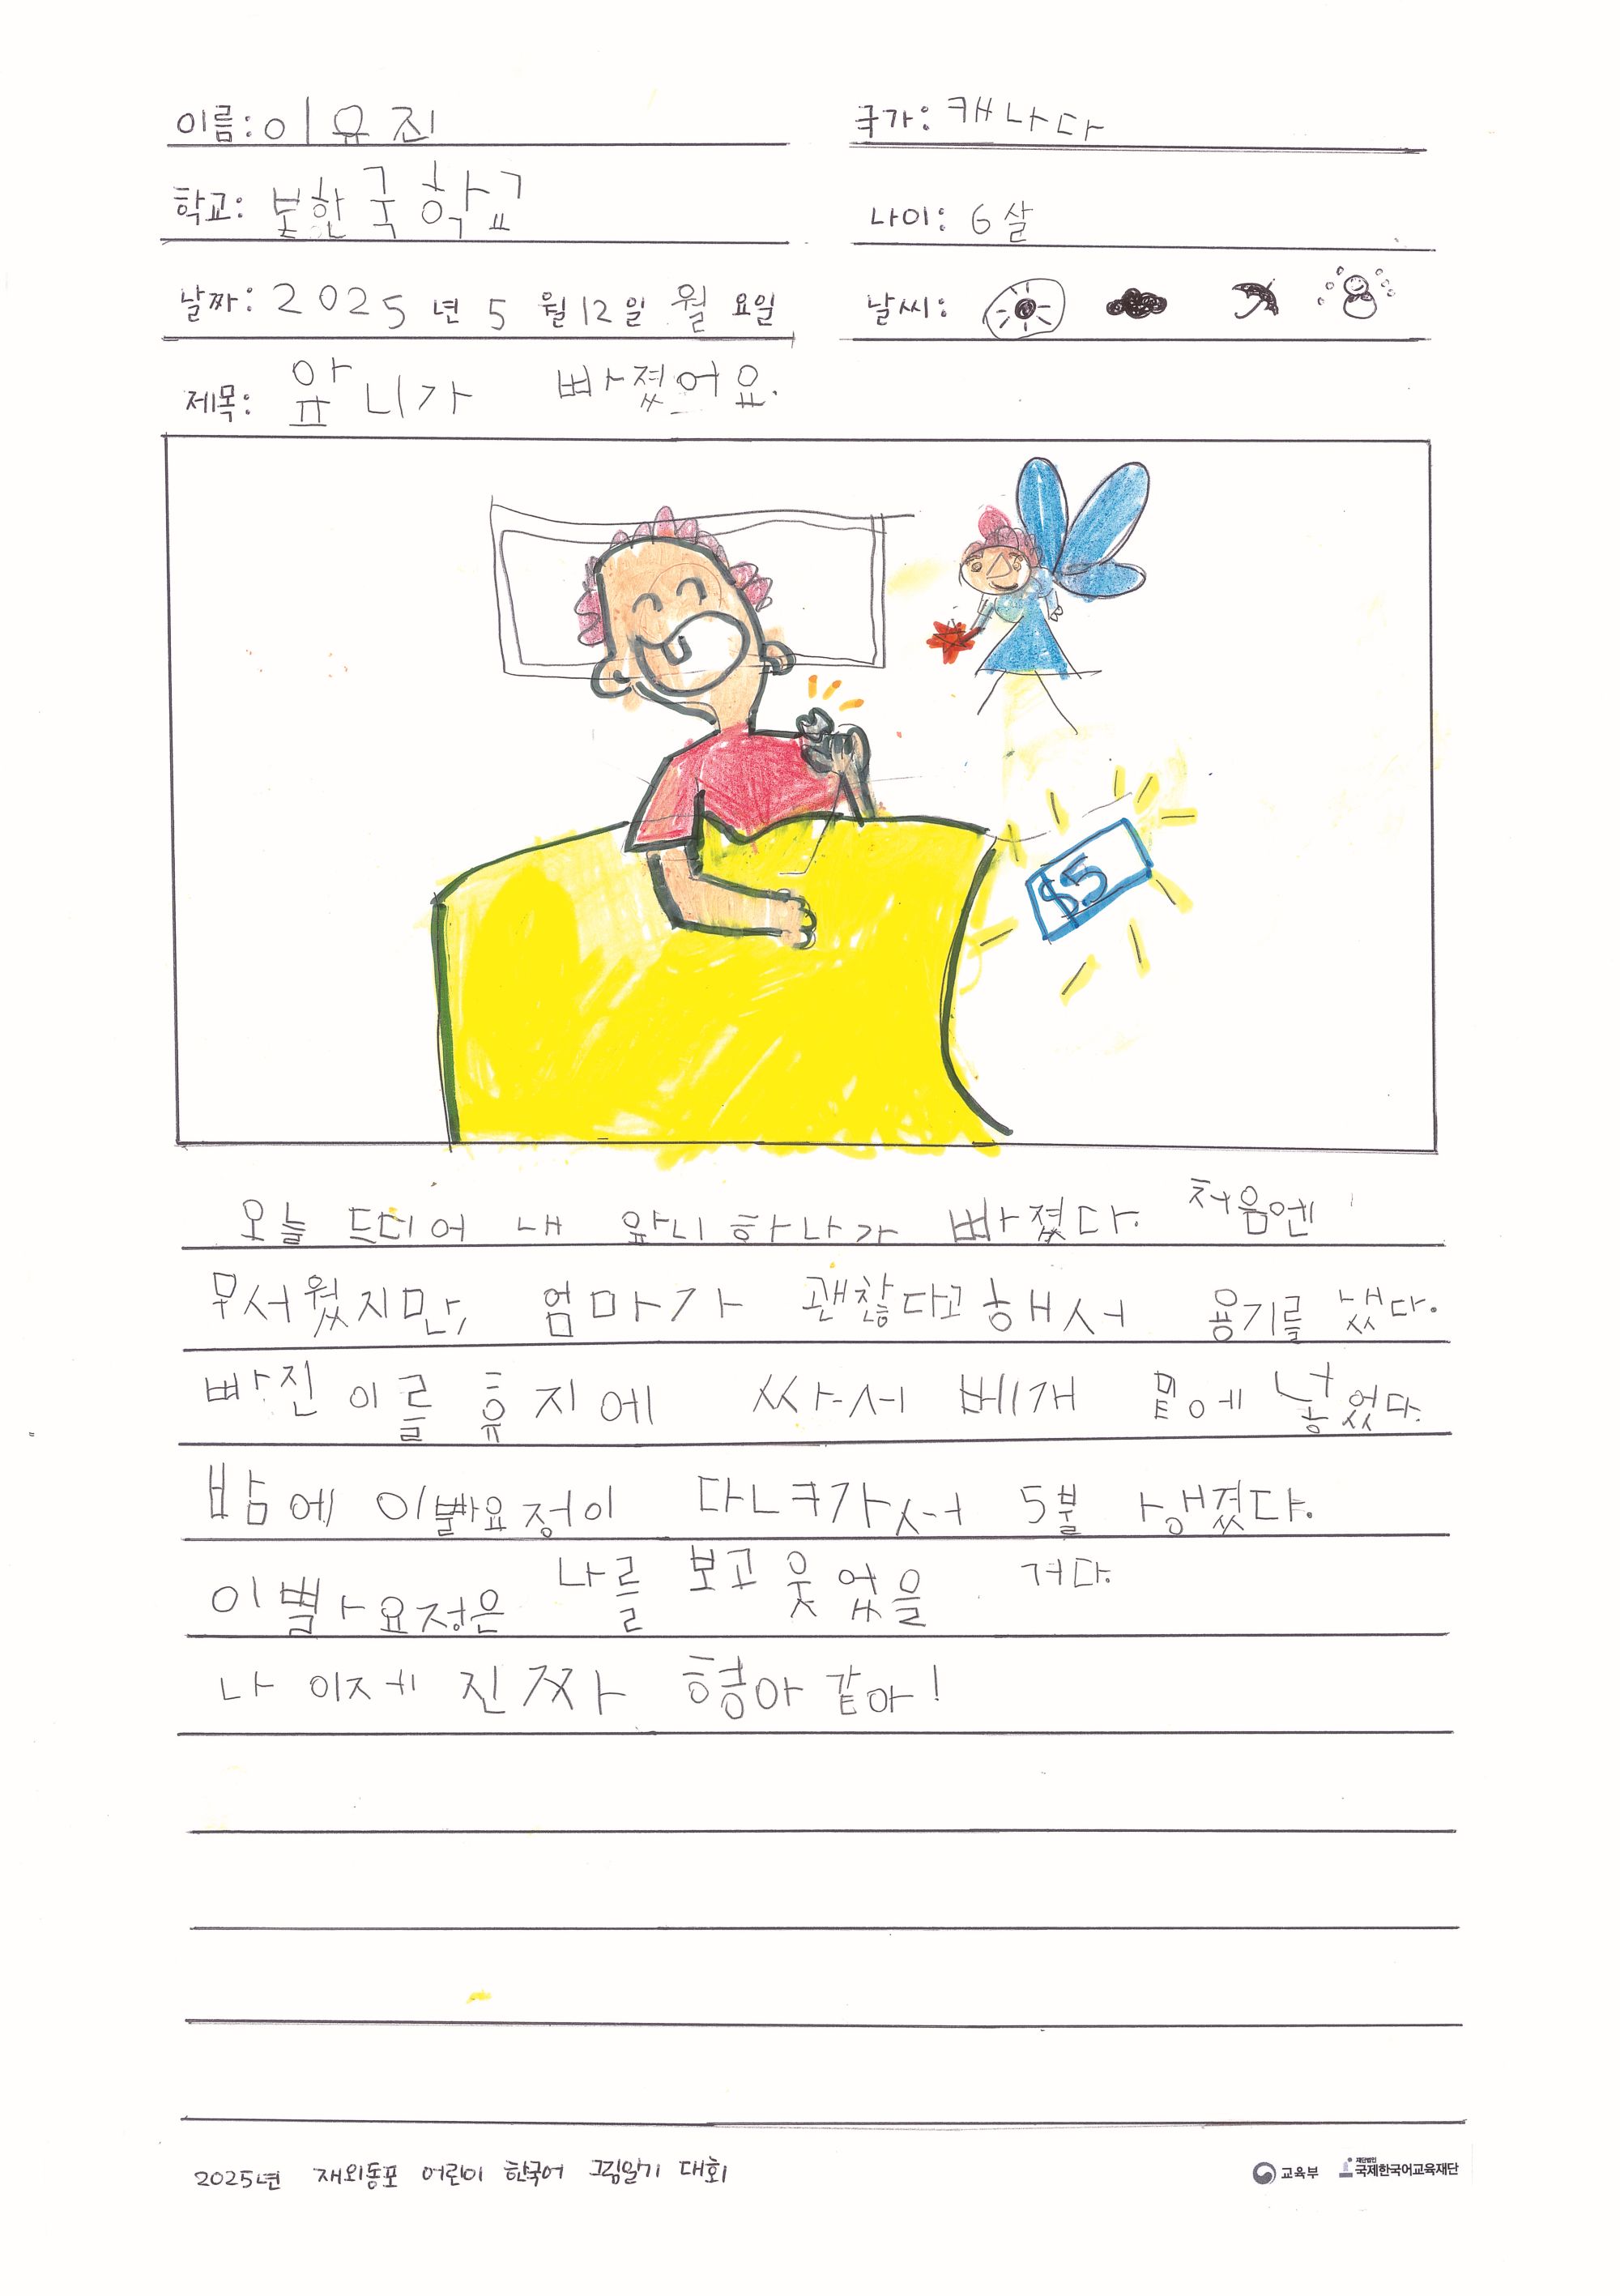 이름: 이유진
국가: 캐나다
학교: 본한국학교
나이: 6살
날짜: 2025년 5월 12일 월요일
날씨:
제목: 앞니가 빠졌어요.
$5
오늘 드디어 내 앞니 하나가 빠졌다. 처음엔
무서웠지만, 엄마가 괜찮다고 해서 용기를 냈다.
빠진 이를 휴지에 싸서 베개 밑에 넣었다.
밤에 이빨요정이 다녀가서 5불 생겼다.
이빨요정은 나를 보고 웃었을 거다.
나 이제 진짜 형아 같아!
2025년 재외동포 어린이 한국어 그림일기 대회
교육부
재단법인
국제한국어교육재단